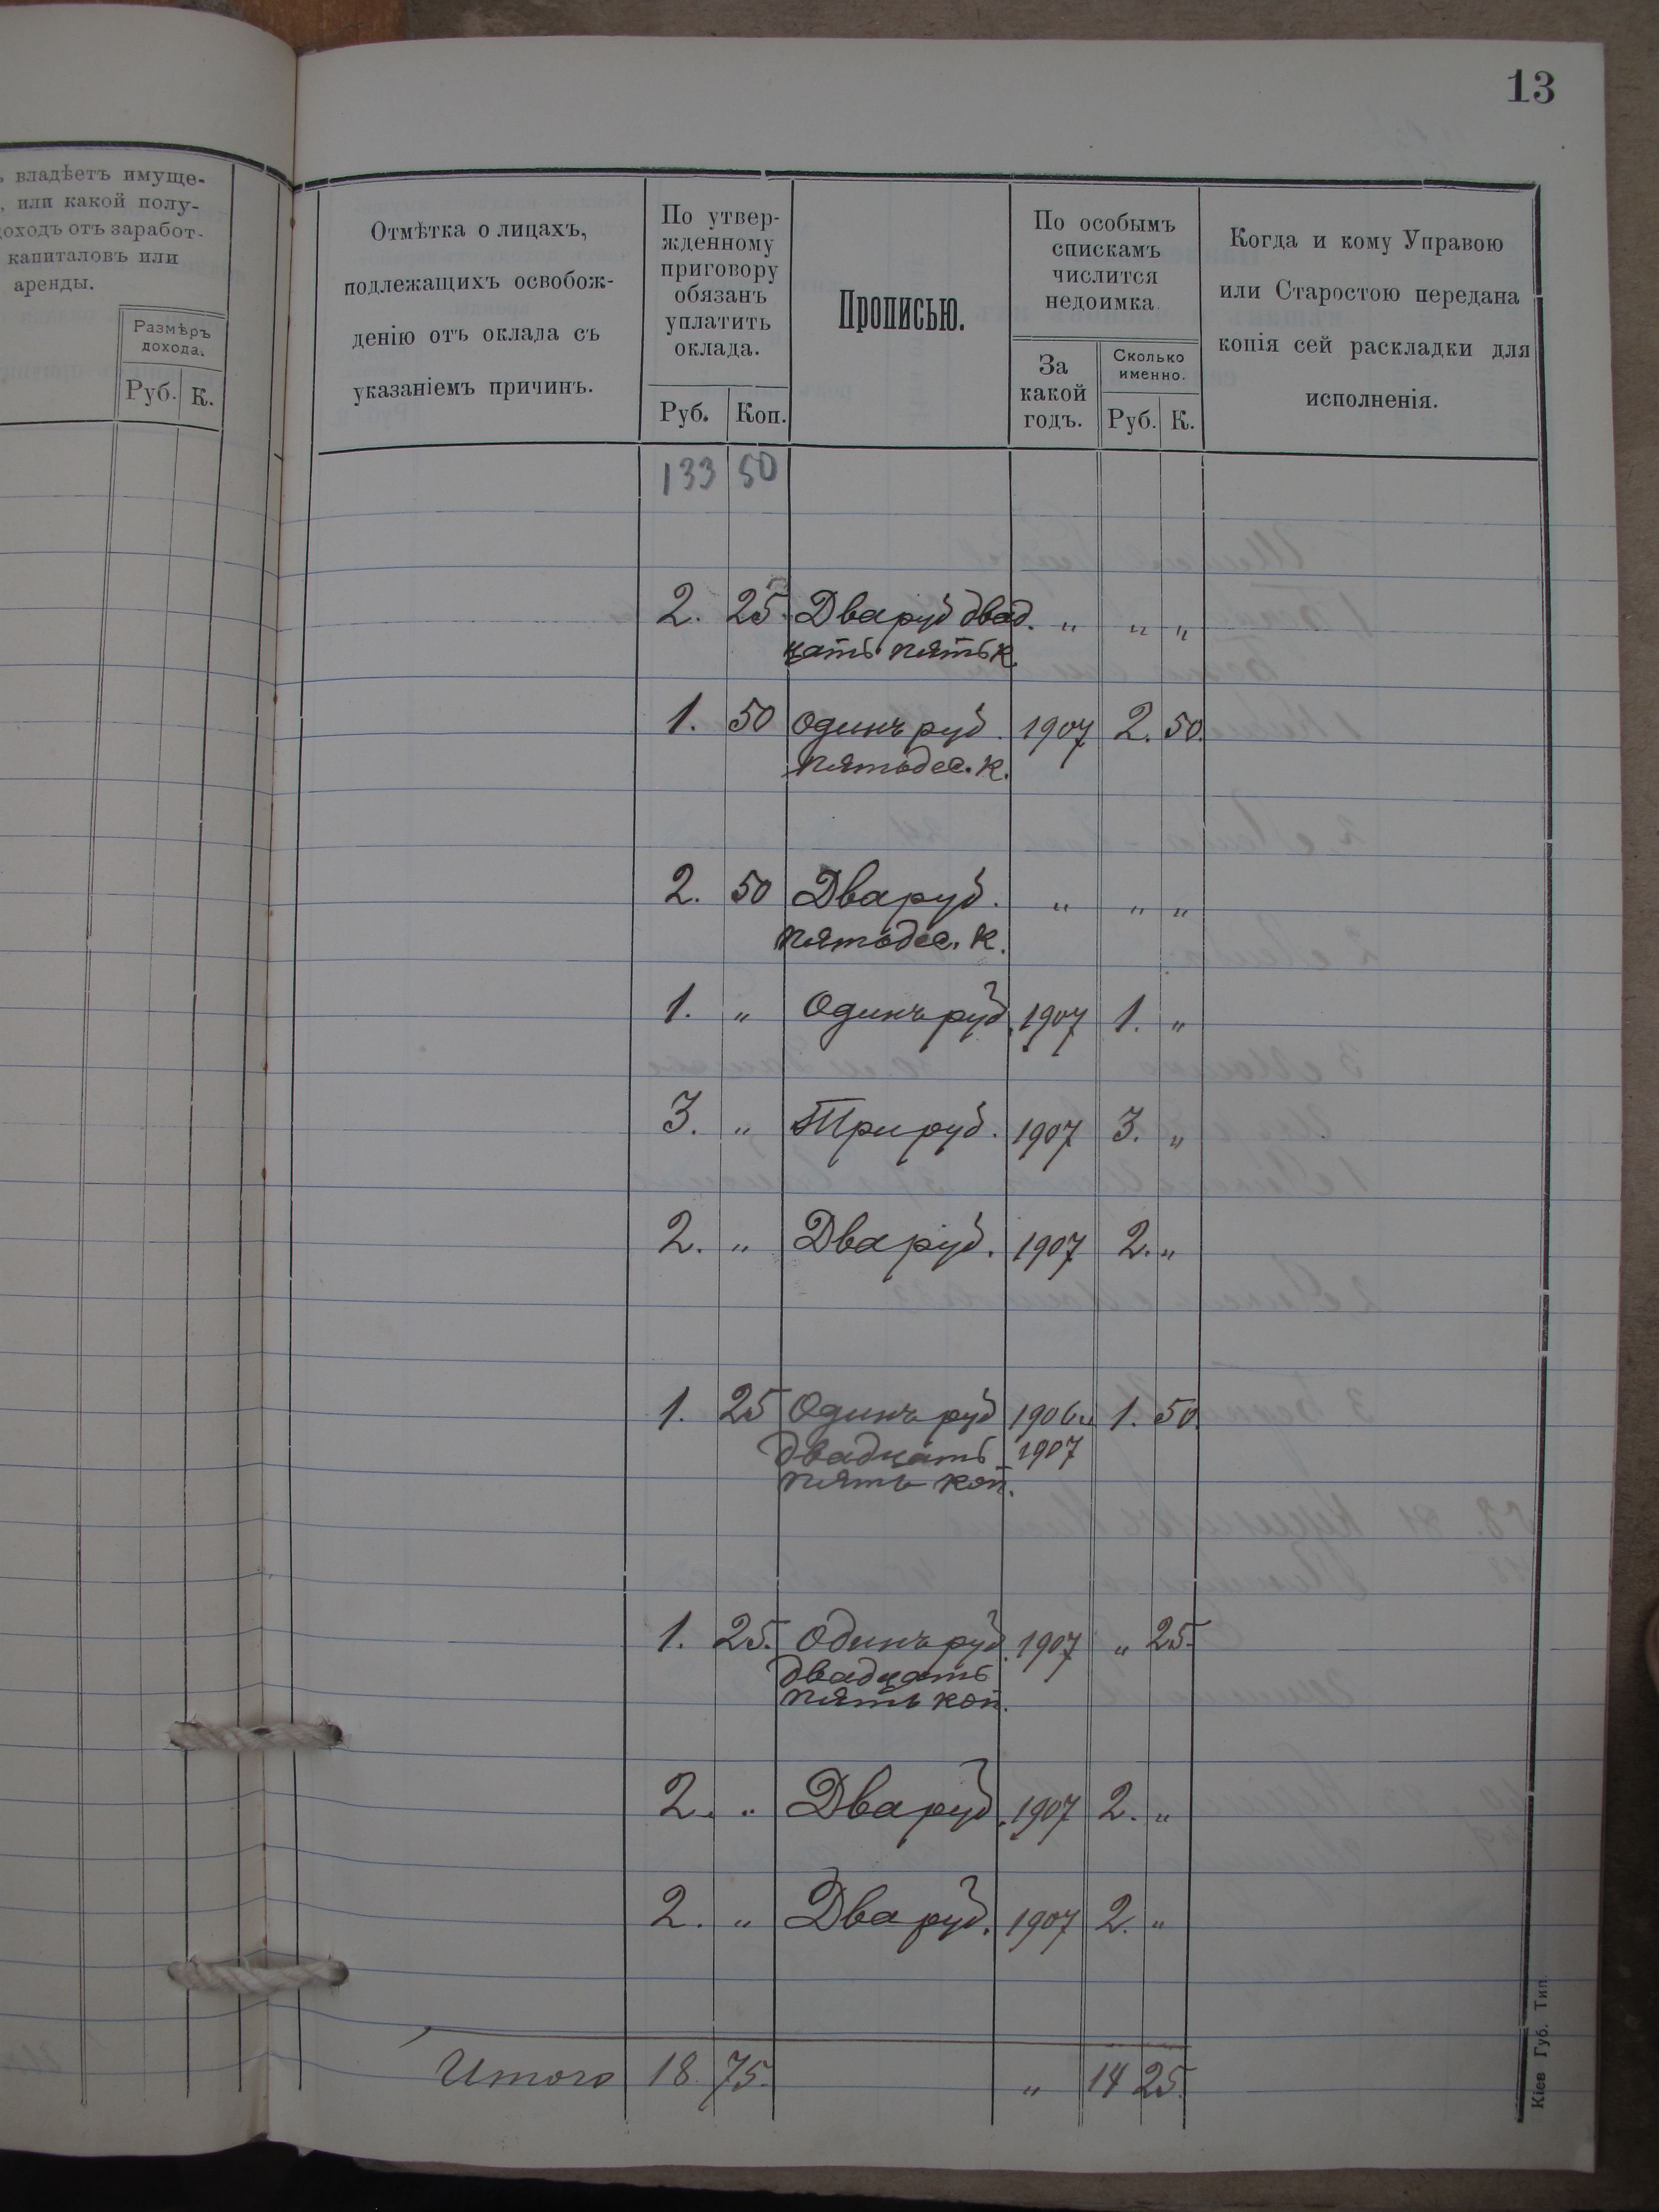 13
ъ владѣетъ имуще-
, или какой полу-
доходъ отъ заработ-
капиталовъ или
аренды.
Размѣръ
дохода.
Руб. К.
Отмѣтка о лицахъ,
подлежащихъ освобож-
денію отъ оклада съ
указаніемъ причинъ.
По утвер-
жденному
приговору
обязанъ
уплатить
оклада.
Руб. Коп.
Прописью.
По особымъ
спискамъ
числится
недоимка
За
какой
годъ.
Сколько
именно.
Руб. К.
Когда и кому Управою
или Старостою передана
копія сей раскладки для
исполненія.
133 50
2. 25. Два руб двад. " " "
цать пять к.
1. 50 Одинъ руб. 1907 2. 50.
пятьдес. к.
2. 50 Два руб. " " "
пятьдес. к.
1. " Одинъ руб. 1907 1. "
3. " Три руб. 1907 3. "
2. " Два руб. 1907 2. "
1. 25 Одинъ руб 1906 и 1. 50.
двадцать 1907
пять коп.
1. 25. Одинъ руб. 1907 " 25.
двадцать
пять коп.
2. " Два руб. 1907 2. "
2. " Два руб. 1907 2. "
Итого 18 75. " 14 25.
Кіев Губ. Тип.